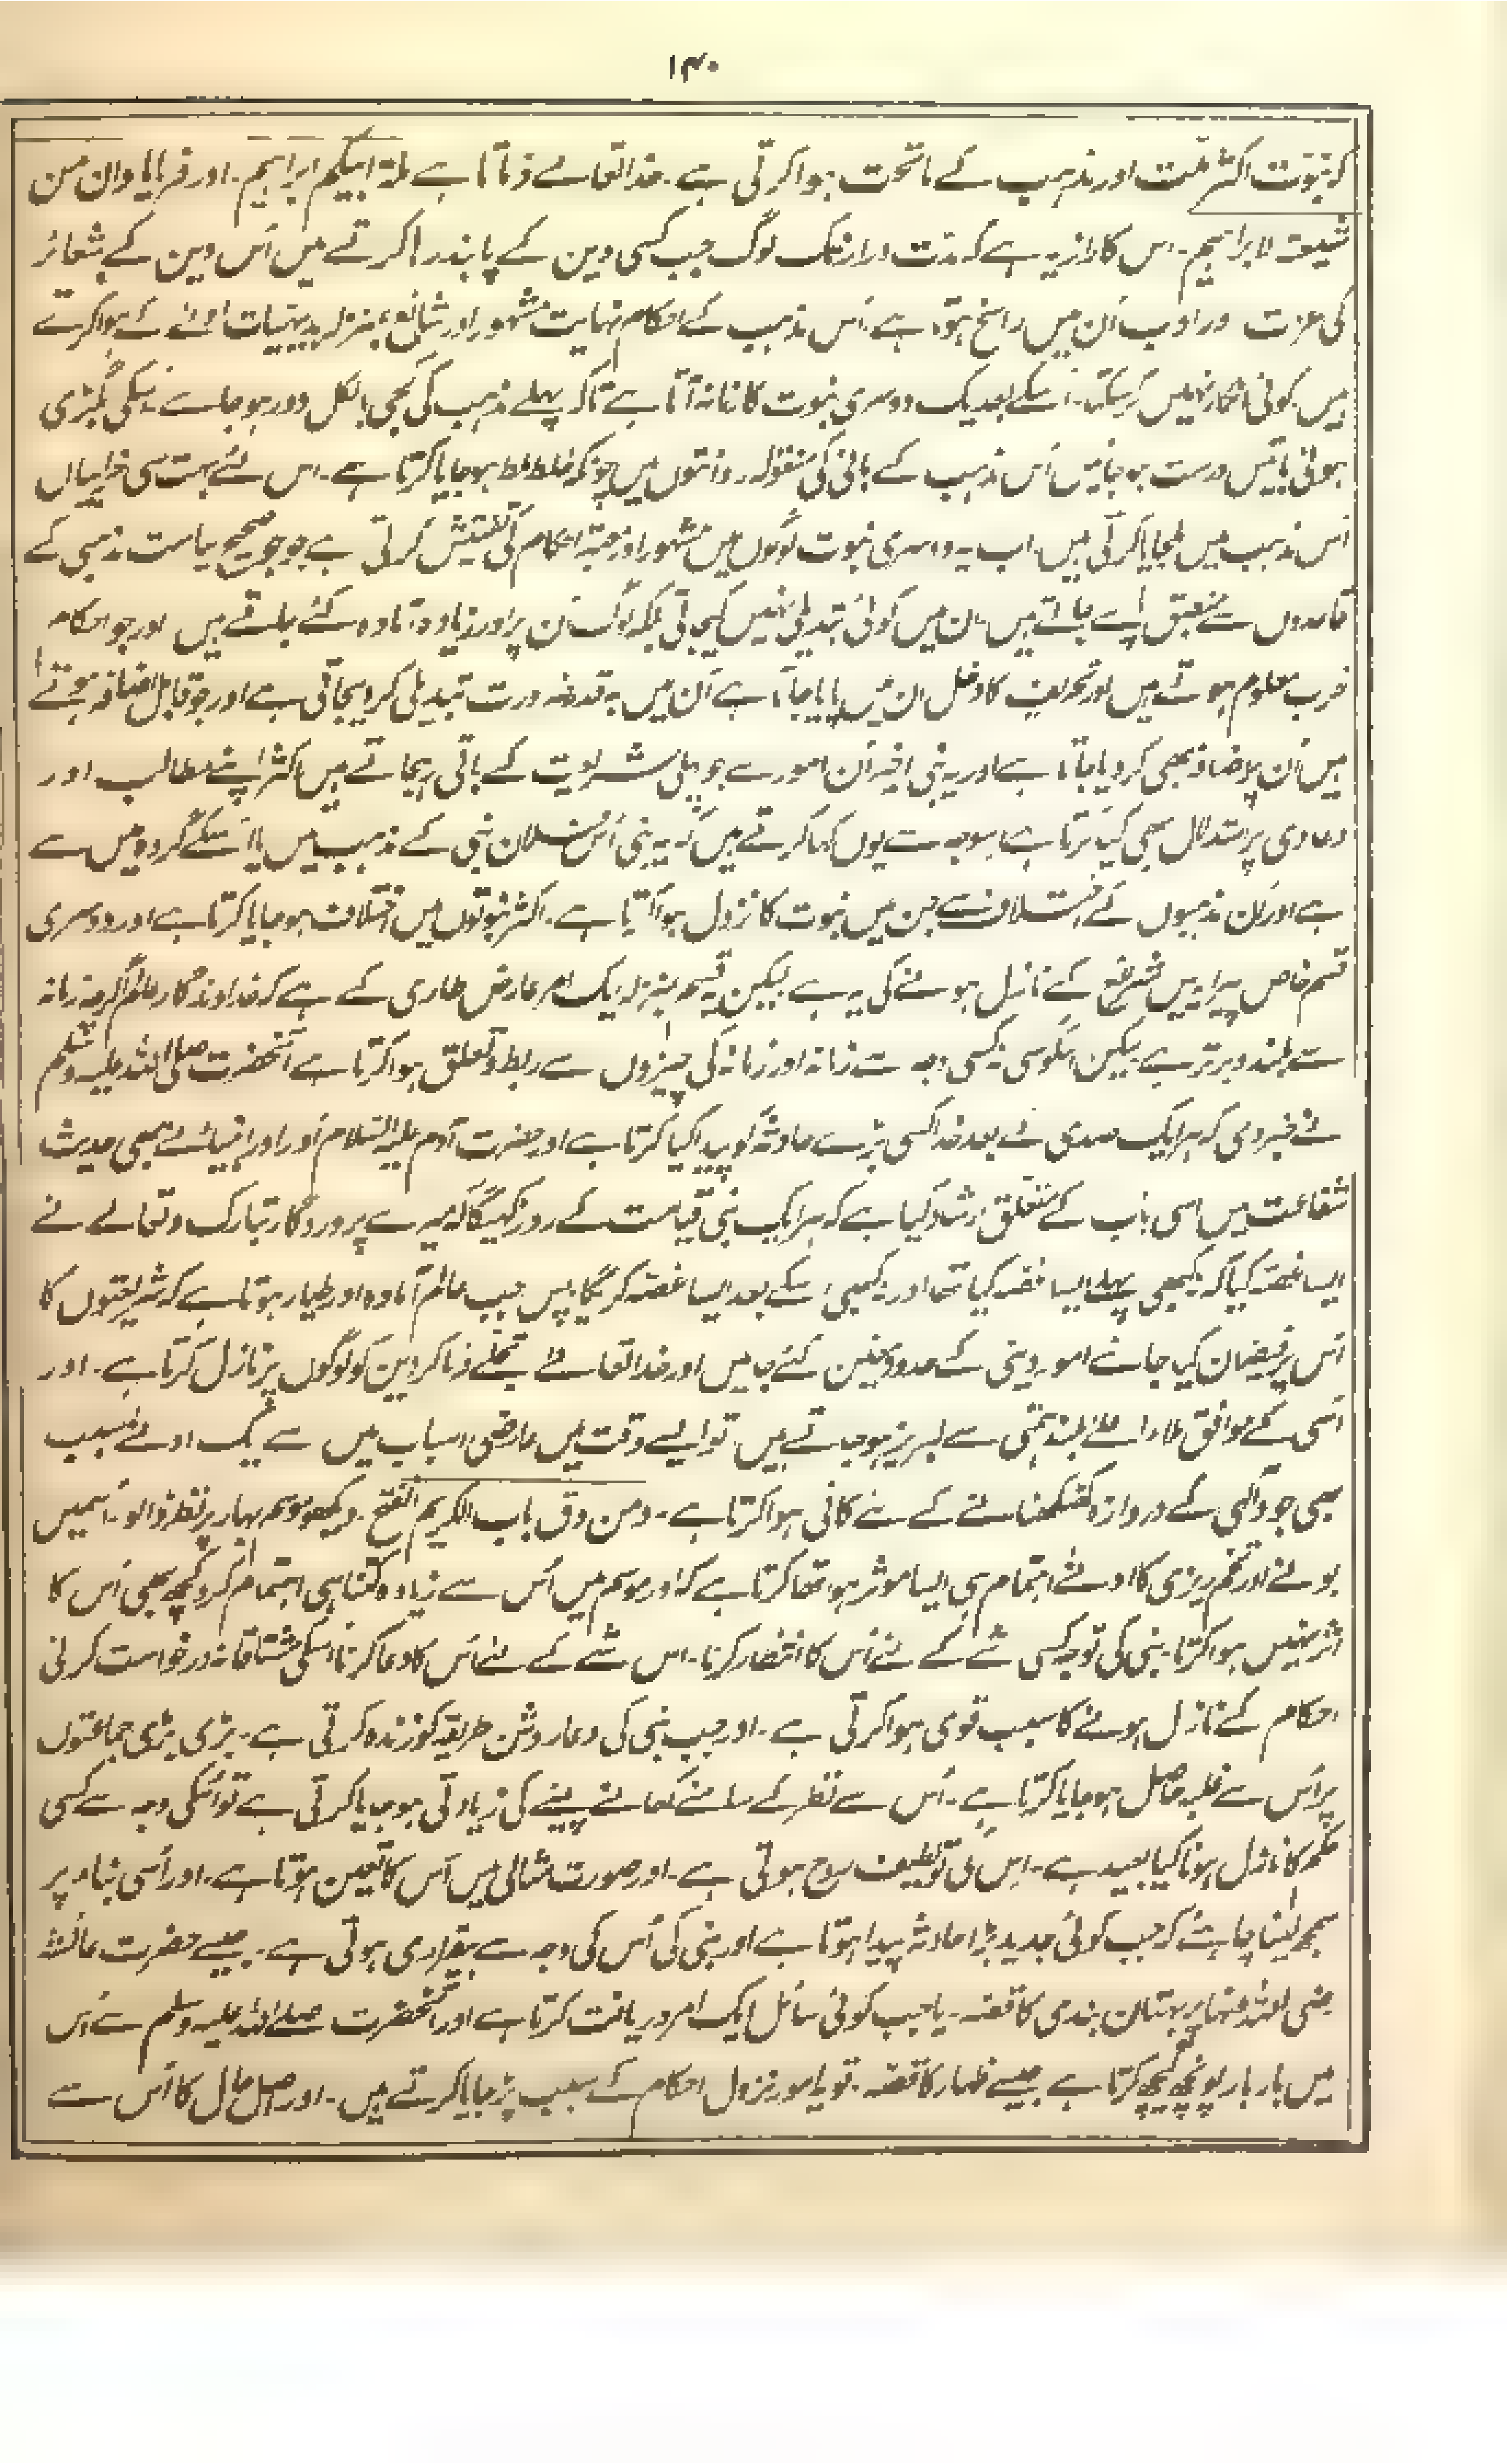 ۱۴۰
کہ نبوّت اکثر ملّت اور مذہب کے ماتحت ہوا کرتی ہے۔ خدا تعالےٰ فرماتا ہے ملۃ ابیکم ابراہیم۔ اور فرمایا وان من
شیعتہ لابراہیم۔ اس کا راز یہ ہے کہ مدّت دراز تک لوگ جب کسی دین کے پابند رہا کرتے ہیں اُس دین کے شعائر
کی عزت اور ادب اُن میں راسخ ہوتا ہے اُس مذہب کے احکام نہایت مشہور اور شائع بمنزلہ بدیہیات اولےٰ کے ہوا کرتے
ہیں کوئی انکار نہیں کر سکتا۔ اسکے بعد ایک دوسری نبوت کا زمانہ آتا ہے تاکہ پہلے مذہب کی کجی بالکل دور ہو جاے۔ اسکی بگڑی
ہوئی باتیں درست ہو جائیں اُس مذہب کے بانی کی منقولہ روایتوں میں چونکہ خلط ملط ہو جایا کرتا ہے۔ اس لئے بہت سی خرابیاں
اُس مذہب میں ملجایا کرتی ہیں۔ اب یہ دوسری نبوت لوگوں میں مشہور اور مروجہ احکام کی تفتیش کرتی ہے جو جو صحیح سیاست مذہبی کے
قاعدوں سے مطابق پاے جاتے ہیں۔ ان میں کوئی تبدیلی نہیں کیجاتی بلکہ لوگ اُن پر اور زیادہ آمادہ کئے جاتے ہیں اور جو احکام
خراب معلوم ہوتے ہیں اور تحریف کا دخل ان میں پایا جاتا ہے اُن میں بقدر ضرورت تبدیلی کر دیجاتی ہے اور جو قابل اضافہ ہوتے
ہیں اُن پر اضافہ بھی کر دیا جاتا ہے اور یہ نبی اخیر اُن امور سے جو پہلی شریعت کے باقی رہجاتے ہیں اکثر اپنے مطالب اور
دعاوی پر استدلال بھی کیا کرتا ہے اسی وجہ سے یوں کہا کرتے ہیں کہ یہ نبی اُس فلان نبی کے مذہب میں یا اُسکے گروہ میں سے
ہے اور اُن مذہبوں کے اختلاف سے جن میں نبوت کا نزول ہوا کرتا ہے۔ اکثر نبوتوں میں اختلاف ہو جایا کرتا ہے اور دوسری
قسم خاص پیرایہ میں شرع کے نازل ہونے کی یہ ہے لیکن یہ قسم بمنزلہ ایک امر عارض طاری کے ہے کہ خداوند کار عالم اگرچہ زمانہ
سے بلند و برتر ہے لیکن اسکو کسی نہ کسی وجہ سے زمانہ اور زمانہ کی چیزوں سے ربط و تعلق ہوا کرتا ہے آنحضرت صلی اللہ علیہ وسلم
نے خبر دی کہ ہر ایک صدی کے بعد خدا کسی بڑے حادثہ کو پیدا کیا کرتا ہے اور حضرت آدم علیہ السلام اور اور انبیاء نے بھی حدیث
شفاعت میں اسی باب کے متعلق ارشاد کیا ہے کہ ہر ایک نبی قیامت کے روز کہیگا کہ میرے پروردگار تبارک و تعالےٰ نے
ایسا غصّہ کیا کہ نہ کبھی پہلے ایسا غصّہ کیا تھا اور نہ کبھی اسکے بعد ایسا غصّہ کریگا پس جب عالم آمادہ اور طیار ہوتا ہے کہ شریعتوں کا
اُس پر فیضان کیا جاے امور دینی کے حدود معین کئے جائیں اور خدا تعالےٰ تجلّے فرما کر دین کو لوگوں پر نازل کرتا ہے۔ اور
اُسی کے موافق ملاء اعلےٰ بلند ہمتی سے لبریز ہو جاتے ہیں تو ایسے وقت میں عارضی اسباب میں سے ایک ادنےٰ سبب
بھی جود الٰہی کے دروازہ کھٹکھٹانے کے لئے کافی ہوا کرتا ہے۔ ومن دق باب الکریم انفتح۔ دیکھو موسم بہار پر نظر ڈالو۔ اسمیں
بونے اور تخم ریزی کا ادنےٰ اہتمام ہی ایسا موثر ہوا کرتا ہے کہ اور موسم میں اُس سے زیادہ کتنا ہی اہتمام کرو کچھ بھی اُس کا
اثر نہیں ہوا کرتا۔ نبی کی توجہ کسی شے کے لئے اُس کا انتظار کرنا۔ اس شے کے لئے اُس کا دعا کرنا اسکی مشتاقانہ درخواست کرنی
احکام کے نازل ہونے کا سبب قوی ہوا کرتی ہے۔ اور جب نبی کی دعا روشن طریقہ کو زندہ کرتی ہے۔ بڑی بڑی جماعتوں
پر اُس سے غلبہ حاصل ہو جایا کرتا ہے۔ اُس سے نظر کے سامنے کھانے پینے کی زیادتی ہو جایا کرتی ہے تو اُسکی وجہ سے کسی
حکم کا نازل ہونا کیا بعید ہے۔ اس کی تو لطیف روح ہوتی ہے۔ اور صورت مثالی میں اُس کا تعین ہوتا ہے۔ اور اُسی بناء پر
سمجھ لینا چاہئے کہ جب کوئی جدید بڑا حادثہ پیدا ہوتا ہے اور نبی کی اُس کی وجہ سے بیقراری ہوتی ہے۔ جیسے حضرت عائشہ
رضی اللہ عنہا پر بہتان بندی کا قصّہ۔ یا جب کوئی سائل ایک امر دریافت کرتا ہے اور آنحضرت صلے اللہ علیہ وسلم سے اُس
میں بار بار پونچھ گچھ کرتا ہے جیسے ظہار کا قصّہ۔ تو یہ امور نزول احکام کے سبب پڑ جایا کرتے ہیں۔ اور اصل حال کا اُس سے